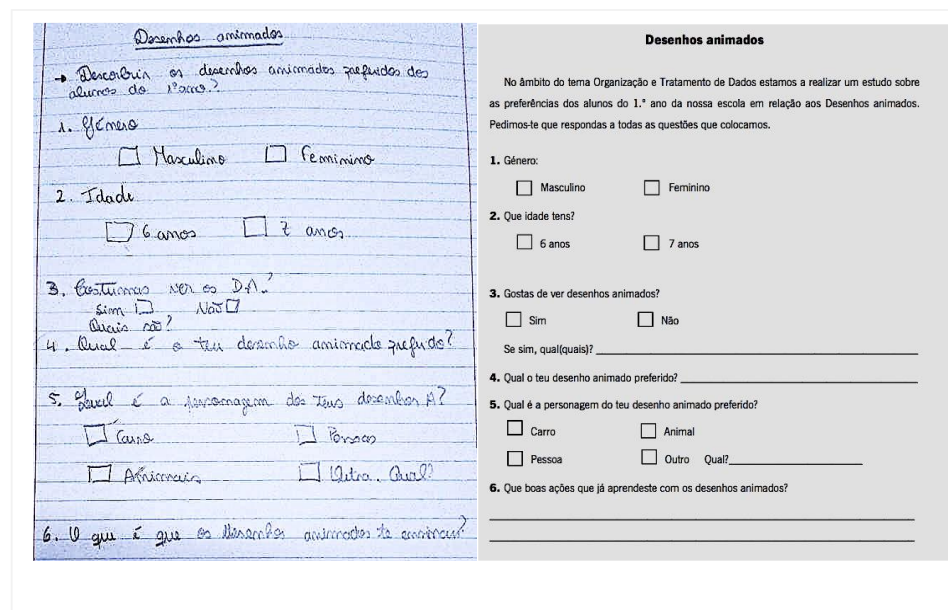 Desenhos animados
→ Descobrir os desenhos animados preferidos dos
alunos do 1º ano?
1. Género
Masculino Feminino
2. Idade
6 anos 7 anos
3. Costumas ver os D.A.?
Sim Não
Quais são?
4. Qual é o teu desenho animado prefrido?
5. Qual é a personagem dos teus desenhos A?
Carro Pessoas
Animais Outra. Qual?
6. O que é que os desenhos animados te ensinam?
Desenhos animados
No âmbito do tema Organização e Tratamento de Dados estamos a realizar um estudo sobre
as preferências dos alunos do 1.º ano da nossa escola em relação aos Desenhos animados.
Pedimos-te que respondas a todas as questões que colocamos.
1. Género:
Masculino Feminino
2. Que idade tens?
6 anos 7 anos
3. Gostas de ver desenhos animados?
Sim Não
Se sim, qual(quais)?
4. Qual o teu desenho animado preferido?
5. Qual é a personagem do teu desenho animado preferido?
Carro Animal
Pessoa Outro Qual?
6. Que boas ações que já aprendeste com os desenhos animados?